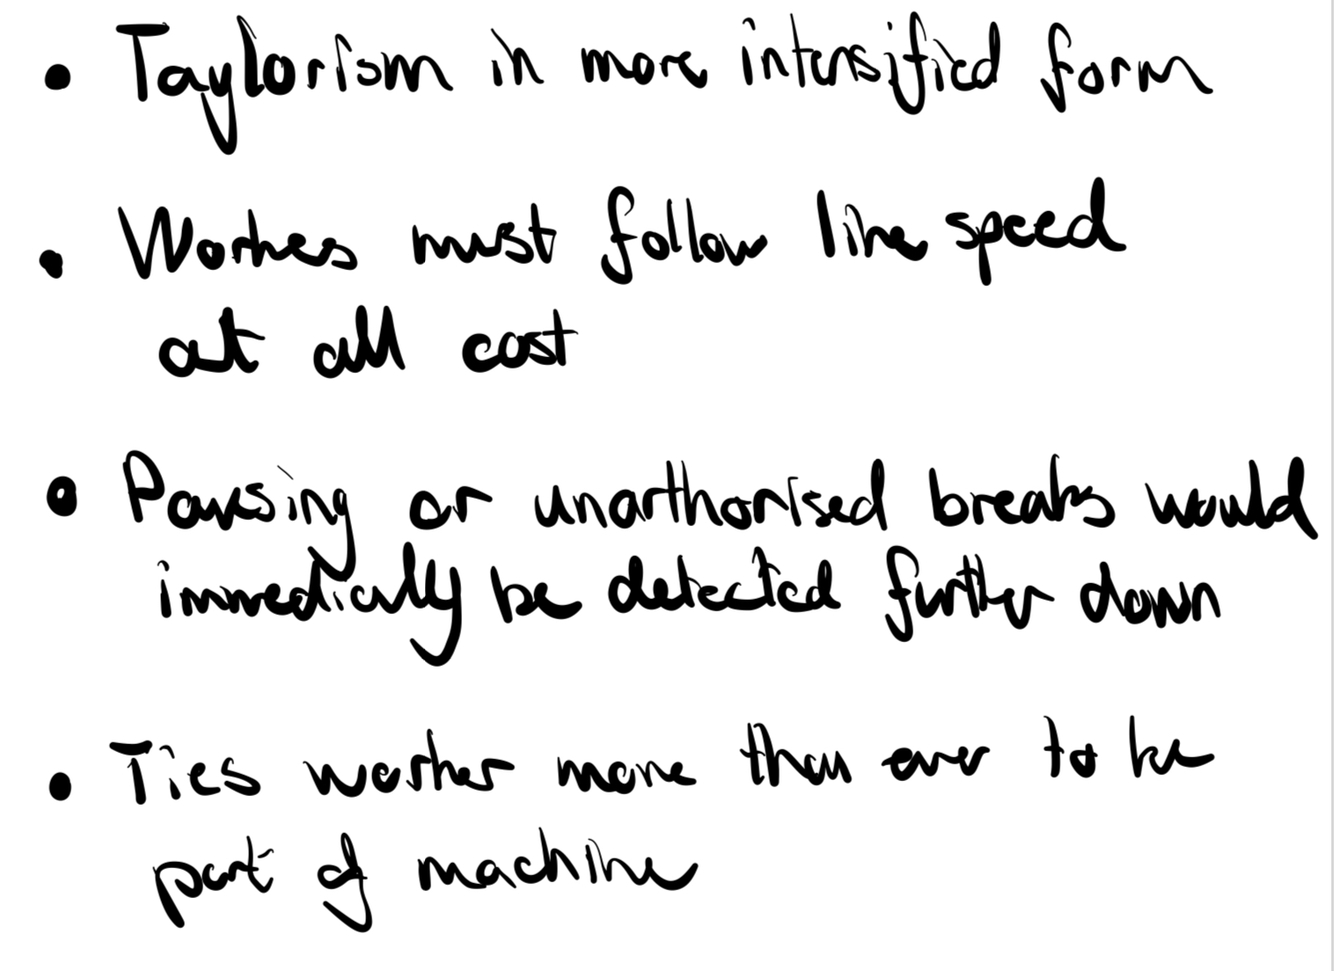 • Taylorism in more intensified form
• Workes must follow line speed
at all cost
• Pausing or unarthorised breaks would
immedially be detected further down
• Ties worker more than ever to be
part of machine